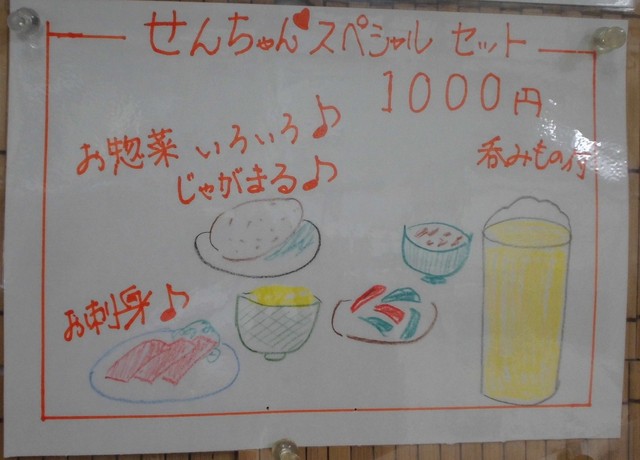 せんちゃん♥スペシャル セット
1000円
お惣菜 いろいろ♪
じゃがまる♪
呑みもの付
お刺身♪